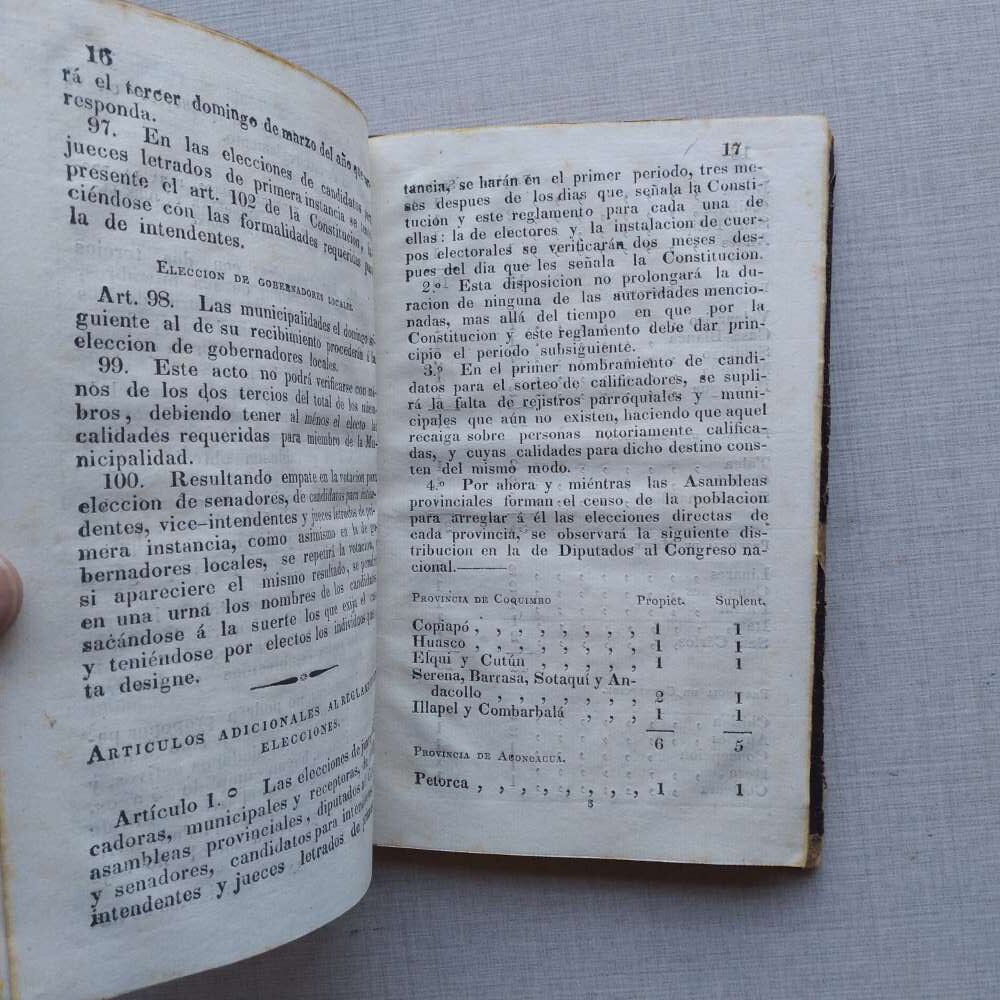 16
rá el tercer domingo de marzo del año que
responda.
97. En las elecciones de candidatos
jueces letrados de primera instancia se
presente el art. 102 de la Constitucion,
ciéndose con las formalidades requeridas para
la de intendentes.
ELECCION DE GOBERNADORES LOCALES.
Art. 98. Las municipalidades el domingo si-
guiente al de su recibimiento procederán á la
eleccion de gobernadores locales.
99. Este acto no podrá verificarse con mé-
nos de los dos tercios del total de los miem-
bros, debiendo tener al ménos el electo las
calidades requeridas para miembro de la Mu-
nicipalidad.
100. Resultando empate en la votacion para
eleccion de senadores, de candidatos para inten-
dentes, vice-intendentes y jueces letrados de pri-
mera instancia, como asimismo en la de go-
bernadores locales, se repetirá la votacion, y
si apareciere el mismo resultado, se pondrán
en una urna los nombres de los candidatos
sacándose á la suerte los que exija el
y teniéndose por electos los individuos que
ta designe.
ARTICULOS ADICIONALES AL REGLAMENTO
ELECCIONES.
Artículo 1.º Las elecciones de
cadoras, municipales y receptoras, de
asambleas provinciales, diputados
y senadores, candidatos para
intendentes y jueces letrados de
17
tancia, se harán en el primer periodo, tres me-
ses despues de los dias que señala la Consti-
tución y este reglamento para cada una de
ellas: la de electores y la instalacion de cuer-
pos electorales se verificarán dos meses des-
pues del dia que les señala la Constitucion.
2.º Esta disposicion no prolongará la du-
racion de ninguna de las autoridades mencio-
nadas, mas allá del tiempo en que por la
Constitucion y este reglamento debe dar prin-
cipio el periodo subsiguiente.
3.º En el primer nombramiento de candi-
datos para el sorteo de calificadores, se supli-
rá la falta de rejistros parroquiales y muni-
cipales que aún no existen, haciendo que aquel
recaiga sobre personas notoriamente califica-
das, y cuyas calidades para dicho destino cons-
ten del mismo modo.
4.º Por ahora y miéntras las Asambleas
provinciales forman el censo de la poblacion
para arreglar á él las elecciones directas de
cada provincia, se observará la siguiente dis-
tribucion en la de Diputados al Congreso na-
cional.———
PROVINCIA DE COQUIMBO Propiet. Suplent.
Copiapó , , , , , , , , 1 1
Huasco , , , , , , , , 1 1
Elqui y Cutún , , , , , 1 1
Serena, Barrasa, Sotaquí y An-
dacollo , , , , , , , 2 1
Illapel y Combarbalá , , , 1 1
6 5
PROVINCIA DE ACONCAGUA.
Petorca , , , , , , , , 1 1
3